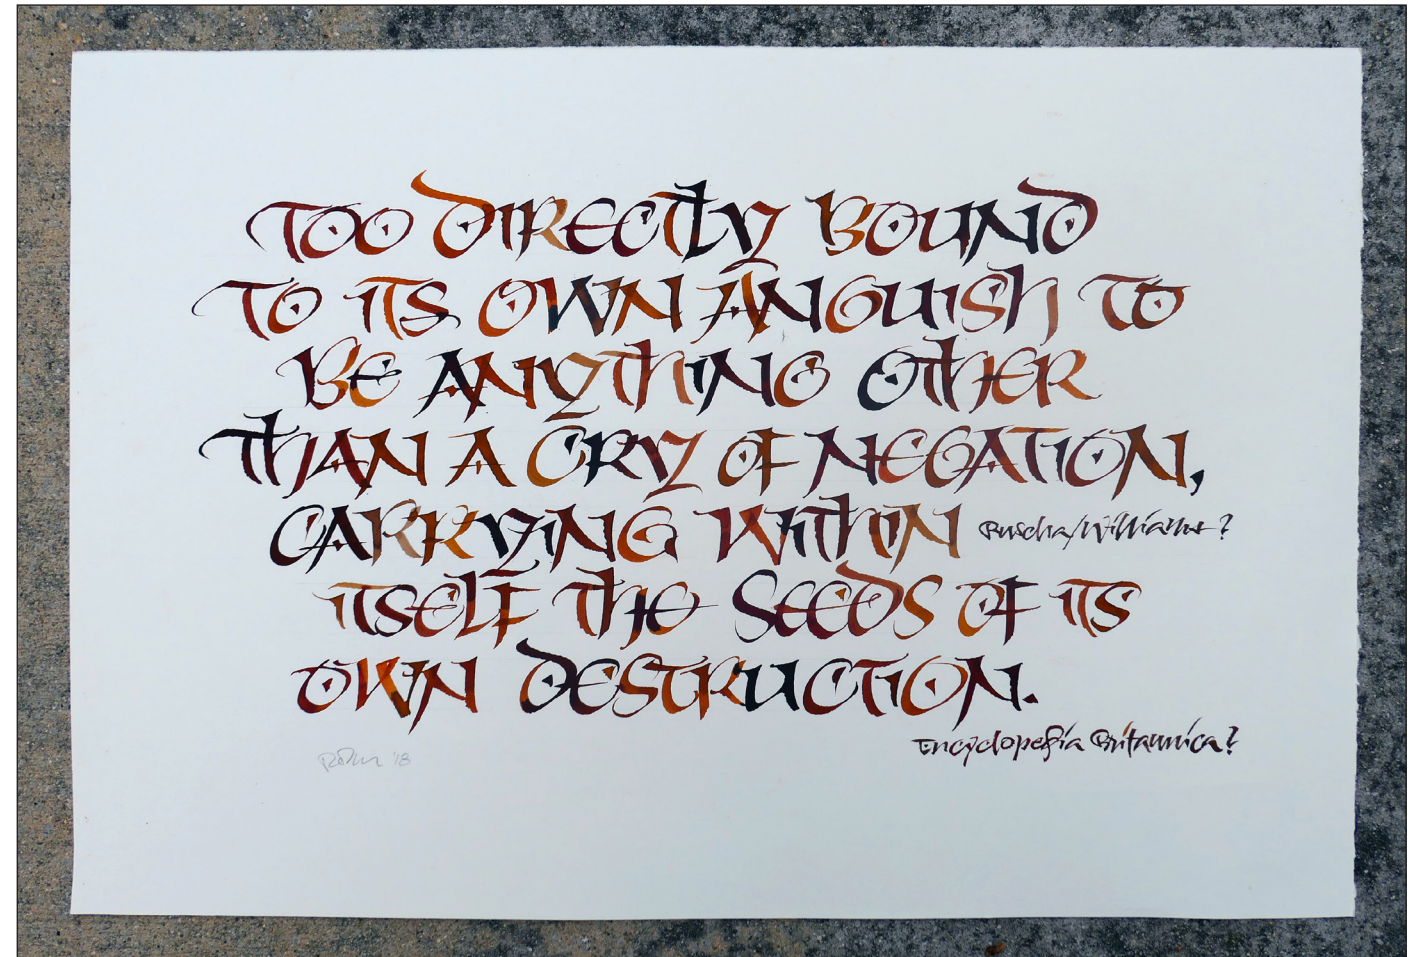 TOO DIRECTLY BOUND
TO ITS OWN ANGUISH TO
BE ANYTHING OTHER
THAN A CRY OF NEGATION,
CARRYING WITHIN
Ruscha/Williams?
ITSELF THE SEEDS OF ITS
OWN DESTRUCTION.
Encyclopedia Britannica?
'18